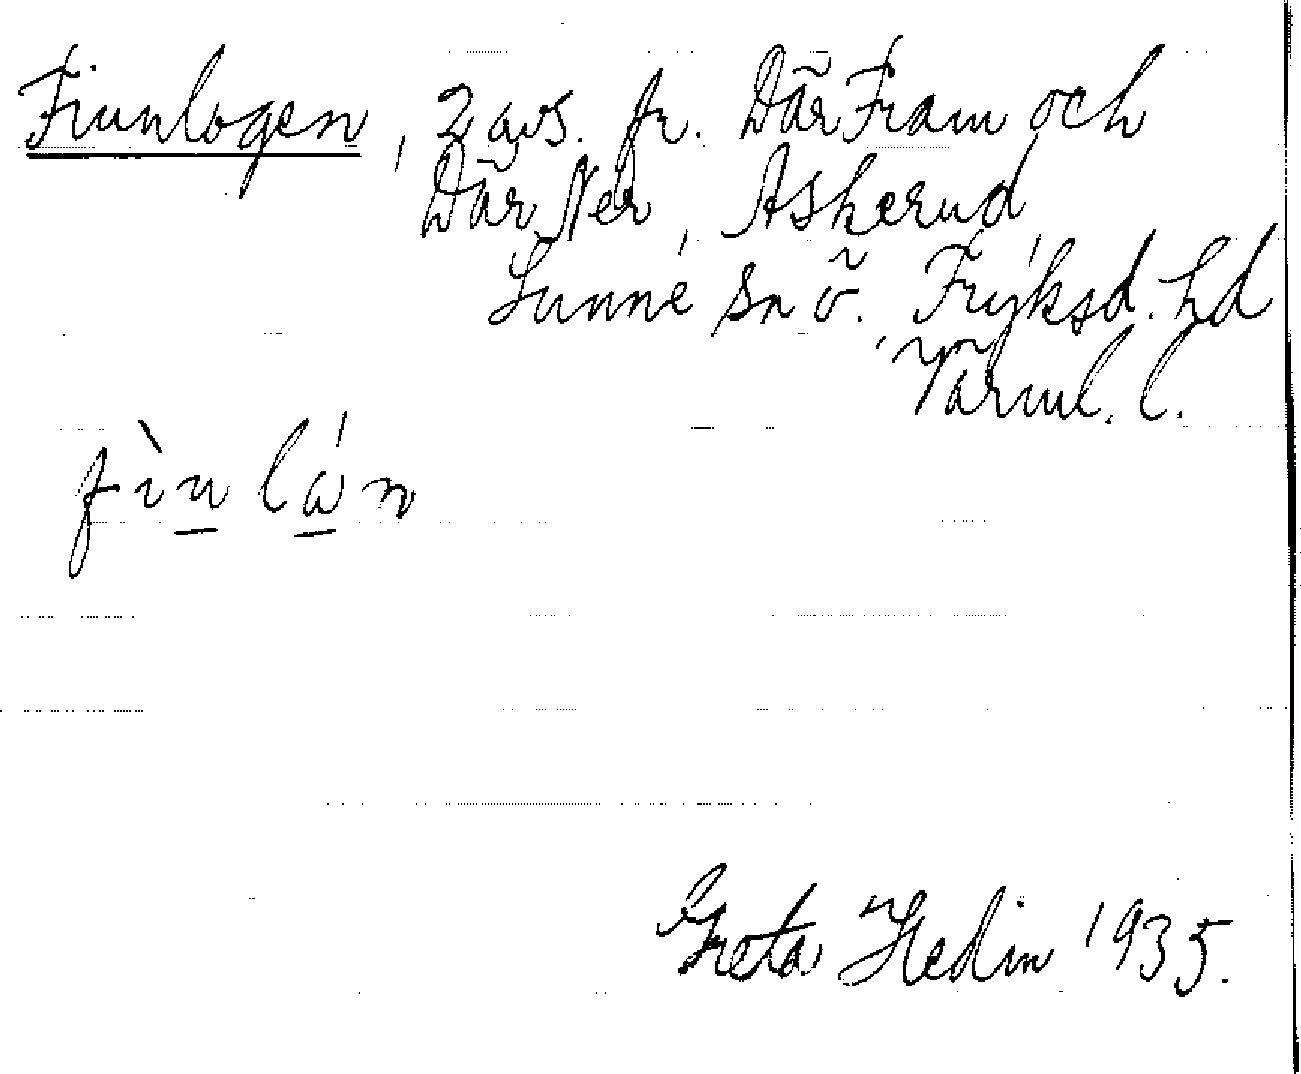 Finnlogen, 2 avs. fr. Där Fram och
Där Ner, Askerud
Sunne sn ö. Fryksd. hd
Värml. l.
fìn lán
Greta Hedin 1935.